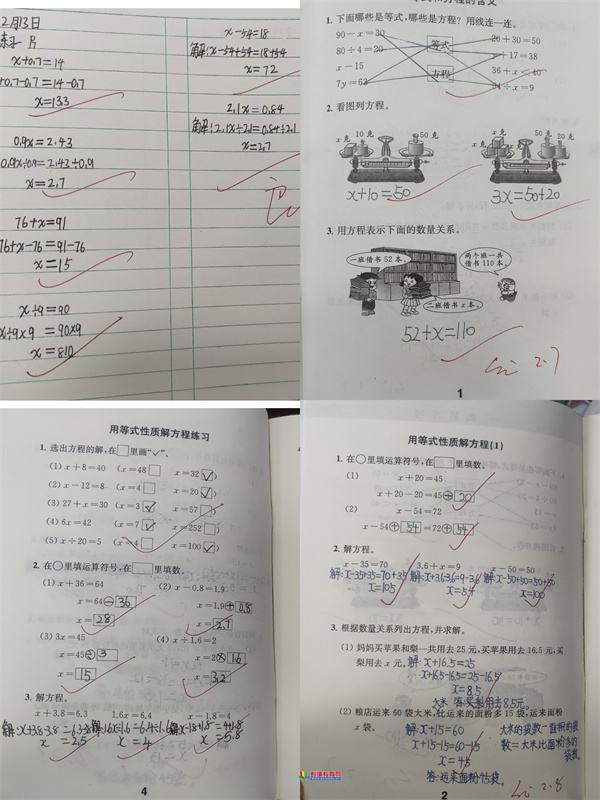 2月13日
练习 片
x+0.7=14
+0.7-0.7=14-0.7
x=133
0.9x=2.43
0.9x÷0.9=2.43÷0.9
x=2.7
76+x=91
76+x-76=91-76
x=15
x÷9=90
x÷9×9=90×9
x=810
x-54=18
解:x-54+54=18+54
x=72
2.1x=0.84
解:2.1x÷2.1=0.84÷2.1
x=2.7
1. 下面哪些是等式,哪些是方程?用线连一连。
90-x=30
20+30=50
80÷4=20
等式
+17=38
x-15
方程
36+x<40
7y=63
54÷x=9
2. 看图列方程。
x克 10克 50克
x克 50克 20克
x+10=50
3x=50+20
3. 用方程表示下面的数量关系。
一班借书52本。
两个班一共借书110本。
二班借书x本。
52+x=110
2.7
1
用等式性质解方程练习
1. 选出方程的解,在□里画“✓”。
(1) x+8=40 (x=48□ x=32☑)
(2) x-12=8 (x=4□ x=20☑)
(3) 27+x=30 (x=3☑ x=57□)
(4) 6x=42 (x=7☑ x=252□)
(5) x÷20=5 (x=4□ x=100☑)
2. 在○里填运算符号,在□里填数。
(1) x+36=64
(2) x-0.8=1.9
x=64-36
x=1.9+0.8
x=28
x=2.7
(3) 3x=45
(4) x÷1.6=2
x=45÷3
x=2×1.6
x=15
x=3.2
3. 解方程。
x+3.8=6.3
1.6x=6.4
x-1.8=4
解:x+3.8-3.8=6.3-3.8
解:1.6x÷1.6=6.4÷1.6
解:x-1.8+1.8=4+1.8
x=2.5
x=4
x=5.8
4
用等式性质解方程(1)
1. 在○里填运算符号,在□里填数。
(1) x+20=45
x+20-20=45-20
(2) x-54=72
x-54+54=72+54
2. 解方程。
x-35=70
3.6+x=9
x-50=50
解:x-35+35=70+35
解:x+3.6-3.6=9-3.6
解:x-50+50=50+50
x=105
x=5.4
x=100
3. 根据数量关系列出方程,并求解。
(1) 妈妈买苹果和梨一共用去25元,买苹果用去16.5元,买
梨用去x元。
解:x+16.5=25
x+16.5-16.5=25-16.5
x=8.5
答:买梨用去8.5元。
(2) 粮店运来60袋大米,比运来的面粉多15袋,运来面粉
x袋。
解:x+15=60
大米的袋数-面粉的袋
x+15-15=60-15
数=大米比面粉多的
袋数
x=45
答:运来面粉45袋。
2.8
2